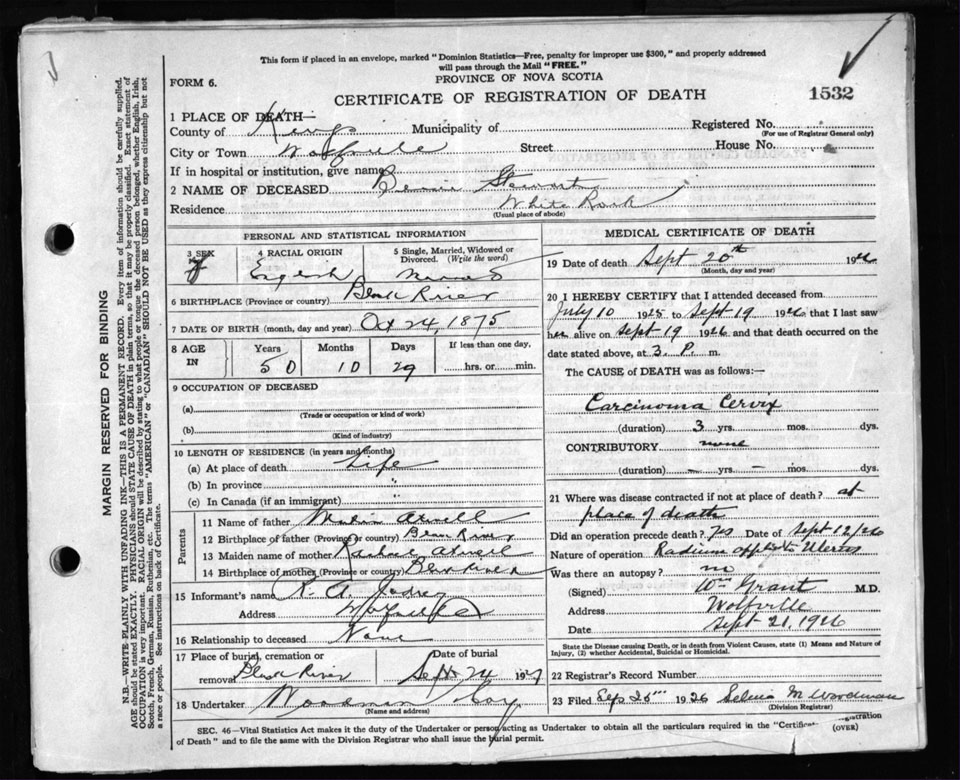 This form if placed in an envelope, marked "Dominion Statistics—Free, penalty for improper use $300," and properly addressed
will pass through the Mail "FREE."
FORM 6.
PROVINCE OF NOVA SCOTIA
CERTIFICATE OF REGISTRATION OF DEATH
1532
1 PLACE OF DEATH—
County of Kings Municipality of Registered No.
(For use of Registrar General only)
City or Town Wolfville Street House No.
If in hospital or institution, give name
2 NAME OF DECEASED Stewart
Residence White Rock
(Usual place of abode)
PERSONAL AND STATISTICAL INFORMATION
3 SEX 4 RACIAL ORIGIN 5 Single, Married, Widowed or
Divorced. (Write the word)
F English Married
6 BIRTHPLACE (Province or country) Black River
7 DATE OF BIRTH (month, day and year) Oct 24, 1875
8 AGE IN Years Months Days If less than one day,
50 10 29 hrs. or min.
9 OCCUPATION OF DECEASED
(a)
(Trade or occupation or kind of work)
(b)
(Kind of industry)
10 LENGTH OF RESIDENCE (in years and months)
(a) At place of death Life
(b) In province "
(c) In Canada (if an immigrant)
Parents
11 Name of father
12 Birthplace of father (Province or country) Black River
13 Maiden name of mother
14 Birthplace of mother (Province or country) Black River
15 Informant's name
Address Wolfville
16 Relationship to deceased None
17 Place of burial, cremation or Date of burial
removal Black River Sept 24 192
18 Undertaker Woodman
(Name and address)
MEDICAL CERTIFICATE OF DEATH
19 Date of death Sept 20th 1926
(Month, day and year)
20 I HEREBY CERTIFY that I attended deceased from
July 10 1925 to Sept 19 1926 that I last saw
her alive on Sept 19 1926 and that death occurred on
date stated above, at 3. P. m.
The CAUSE of DEATH was as follows:—
Carcinoma Cervix
(duration) 3 yrs. mos. dys.
CONTRIBUTORY none
(duration) — yrs. — mos. dys.
21 Where was disease contracted if not at place of death? at
place of death
Did an operation precede death? yes Date of Sept 12/26
Nature of operation Radium appl. to Uterus
Was there an autopsy? no
(Signed) Wm Grant M.D.
Address Wolfville
Date Sept 21, 1926
State the Disease causing Death, or in death from Violent Causes, state (1) Means and Nature of
Injury, (2) whether Accidental, Suicidal or Homicidal.
22 Registrar's Record Number
23 Filed Sep 25 1926 M Woodman
(Division Registrar)
SEC. 46—Vital Statistics Act makes it the duty of the Undertaker or person acting as Undertaker to obtain all the particulars required in the "Certificate
of Death" and to file the same with the Division Registrar who shall issue the burial permit.
(OVER)
MARGIN RESERVED FOR BINDING
N.B.—WRITE PLAINLY WITH UNFADING INK—THIS IS A PERMANENT RECORD. Every item of information should be carefully supplied.
AGE should be stated EXACTLY. PHYSICIANS should STATE CAUSE OF DEATH in plain terms, so that it may be properly classified. Exact statement of
OCCUPATION is very important. RACIAL ORIGIN will be described by stating to what people or tongue the deceased person belonged, whether English, Irish,
Scotch, French, German, Russian, Ruthenian, etc. The terms "AMERICAN" or "CANADIAN" SHOULD NOT BE USED as they express citizenship but not
a race or people. See instructions on back of Certificate.